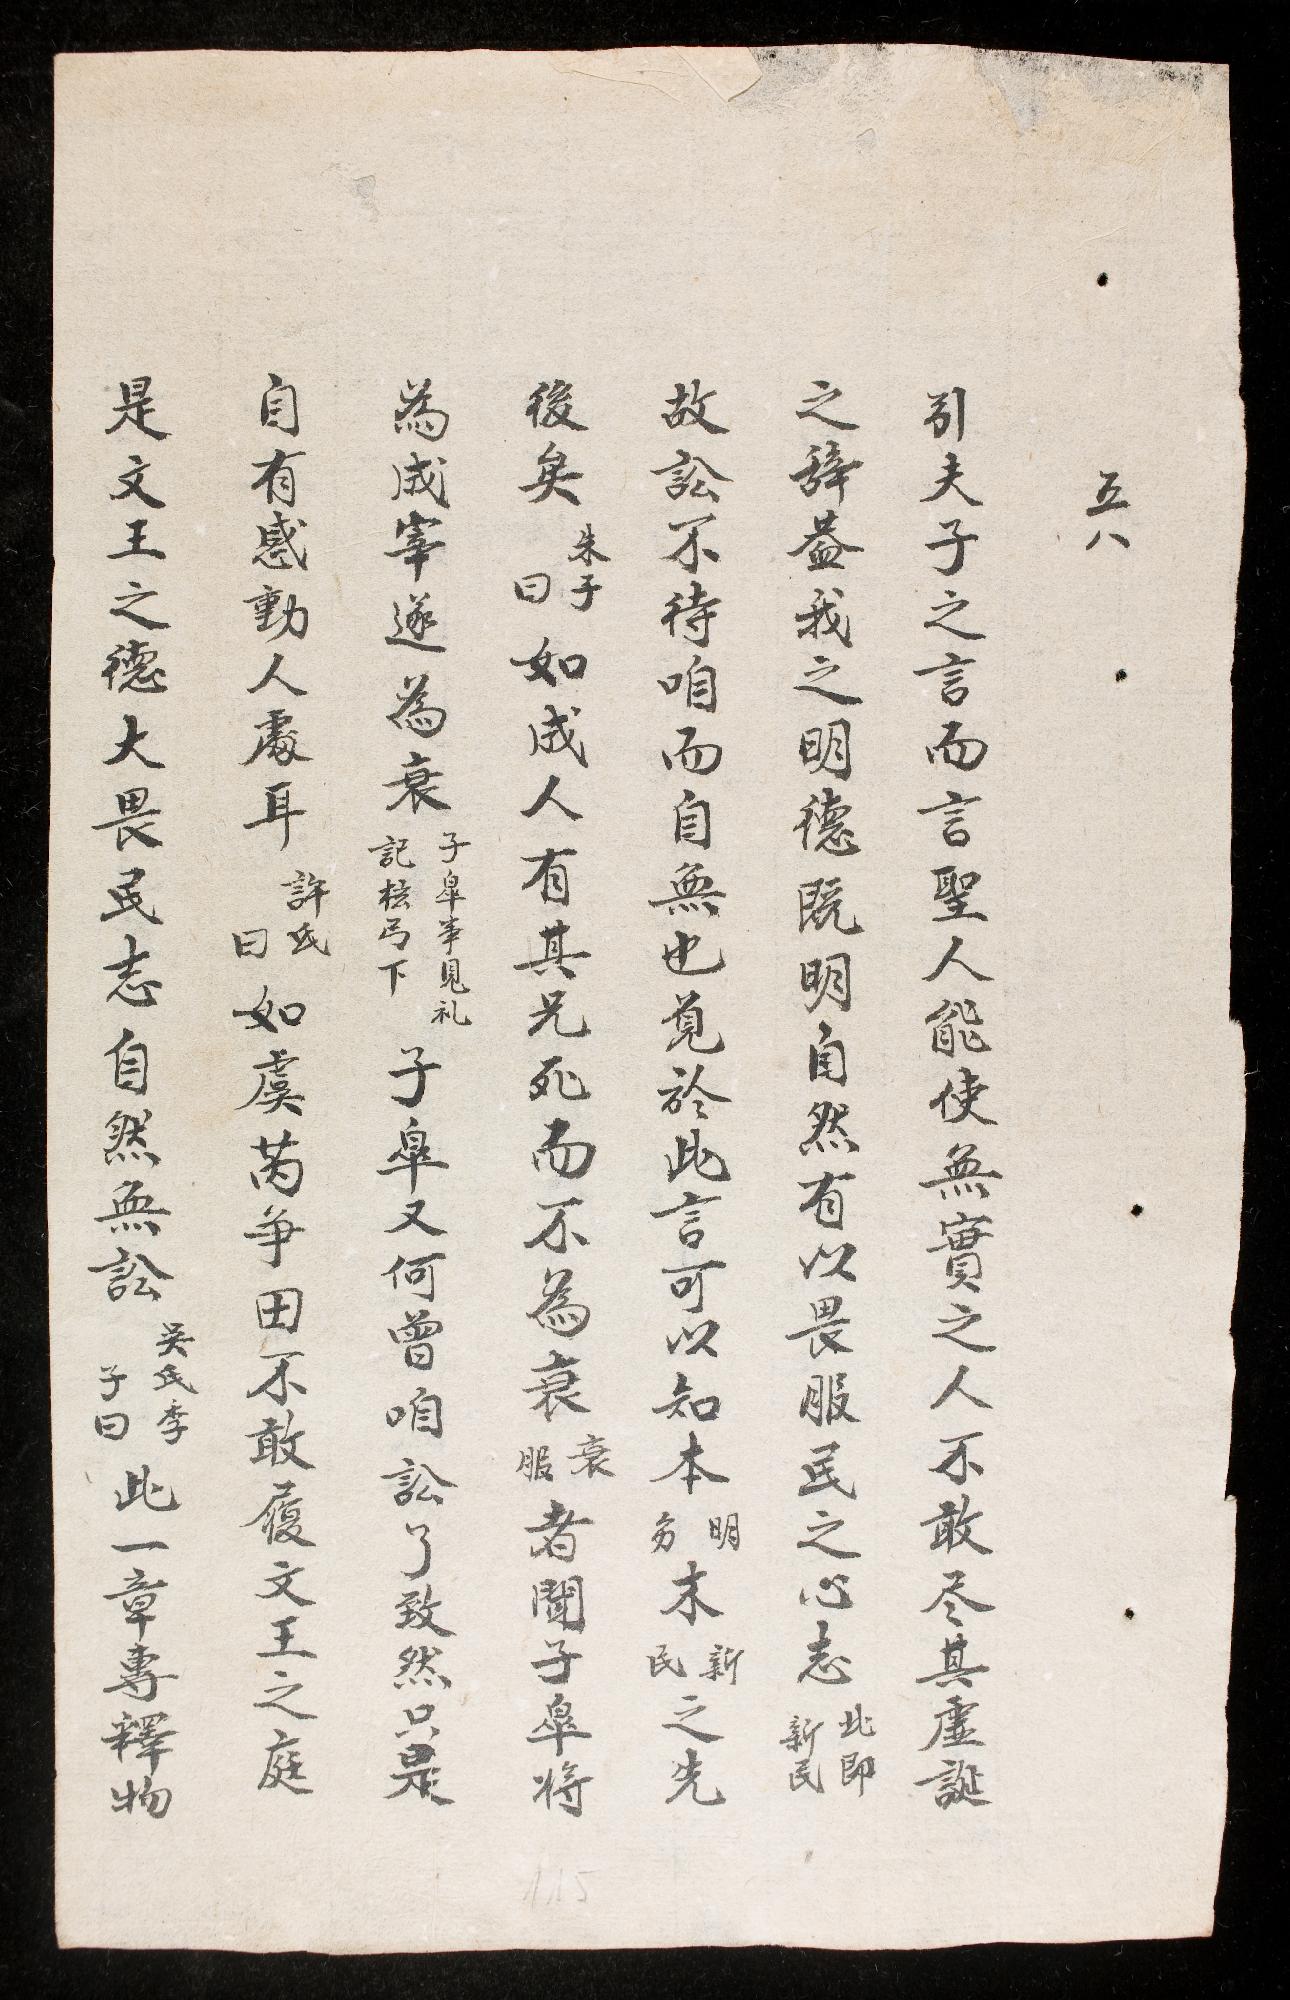 五八
引夫子之言而言聖人能使無實之人不敢尽其虛誕
之辞葢我之明德既明自然有以畏服民之心志此即新民
故訟不待咱而自無也覓於此言可以知本明分末新民之先
後矣朱子曰如成人有其兄死而不為衰衰服者聞子臯将
為成宰遂為衰子臯事見礼記桧弓下子臯又何曾咱訟了致然只是
自有感動人處耳許氏曰如虞芮争田不敢履文王之庭
是文王之德大畏民志自然無訟吴氏季子曰此一章專釋物
115